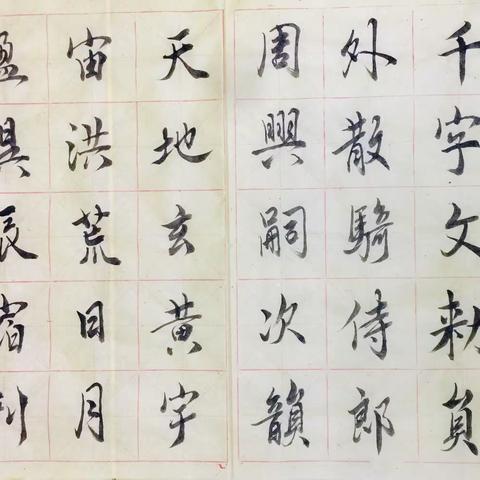 千字文勑員
外散騎侍郎
周興嗣次韻
天地玄黄宇
宙洪荒日月
盈昃辰宿列